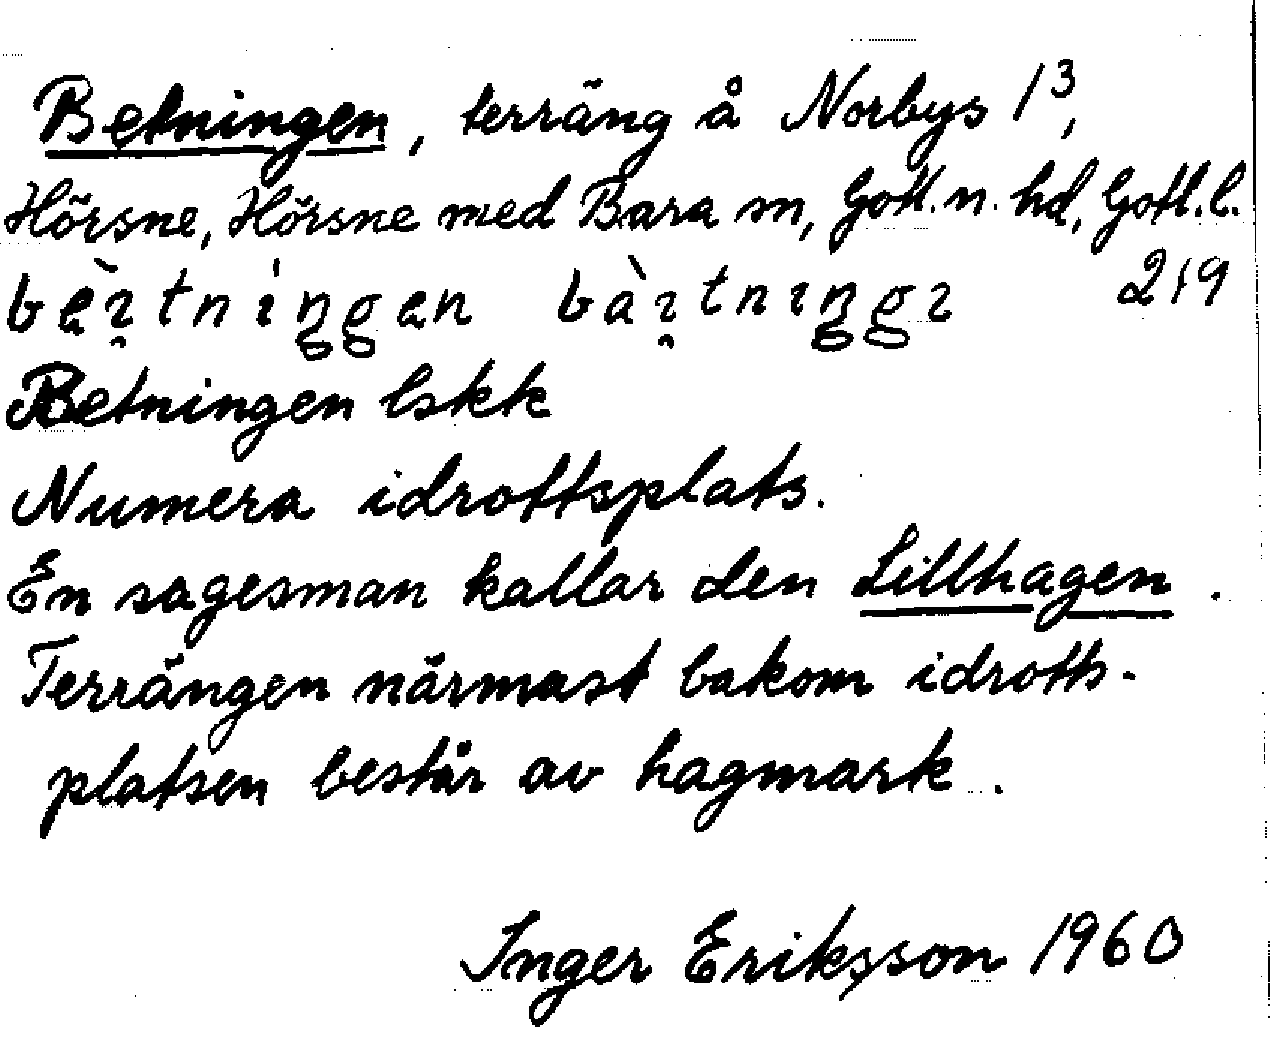 Betningen, terräng å Norbys 1³,
Hörsne, Hörsne med Bara sn, Gotl. n. hd, Gotl. l.
219
Betningen lskk
Numera idrottsplats.
En sagesman kallar den Lillhagen.
Terrängen närmast bakom idrotts-
platsen består av hagmark.
Inger Eriksson 1960